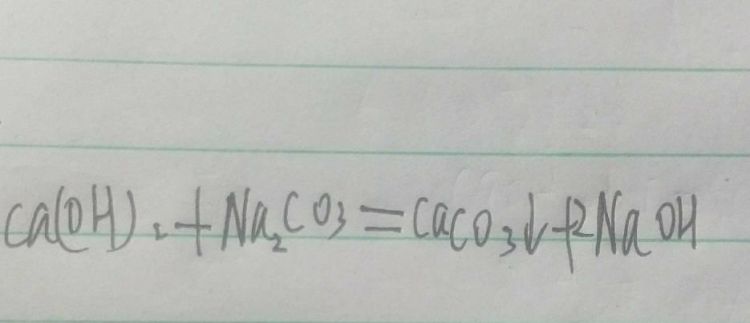 Ca(OH)₂+Na₂CO₃=CaCO₃↓+2NaOH